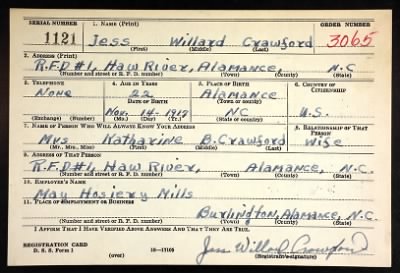 SERIAL NUMBER 1. NAME (Print) ORDER NUMBER
1121 Jess Willard Crawford 3065
(First) (Middle) (Last)
2. ADDRESS (Print)
R.F.D #1, Haw River, Alamance, N.C
(Number and street or R. F. D. number) (Town) (County) (State)
3. TELEPHONE 4. AGE IN YEARS 5. PLACE OF BIRTH 6. COUNTRY OF CITIZENSHIP
None 22 Alamance
DATE OF BIRTH (Town or county)
Nov. 14-1917 NC U.S.
(Exchange) (Number) (Mo.) (Day) (Yr.) (State or country)
7. NAME OF PERSON WHO WILL ALWAYS KNOW YOUR ADDRESS 8. RELATIONSHIP OF THAT PERSON
Mrs Katharine B. Crawford Wife
(Mr., Mrs., Miss) (First) (Middle) (Last)
9. ADDRESS OF THAT PERSON
R.F.D #1, Haw River, Alamance, N.C
(Number and street or R. F. D. number) (Town) (County) (State)
10. EMPLOYER'S NAME
May Hosiery Mills
11. PLACE OF EMPLOYMENT OR BUSINESS
Burlington, Alamance, N.C.
(Number and street or R. F. D. number) (Town) (County) (State)
I AFFIRM THAT I HAVE VERIFIED ABOVE ANSWERS AND THAT THEY ARE TRUE.
REGISTRATION CARD
D. S. S. Form 1 16—17105 Jess Willard Crawford
(Registrant's signature)